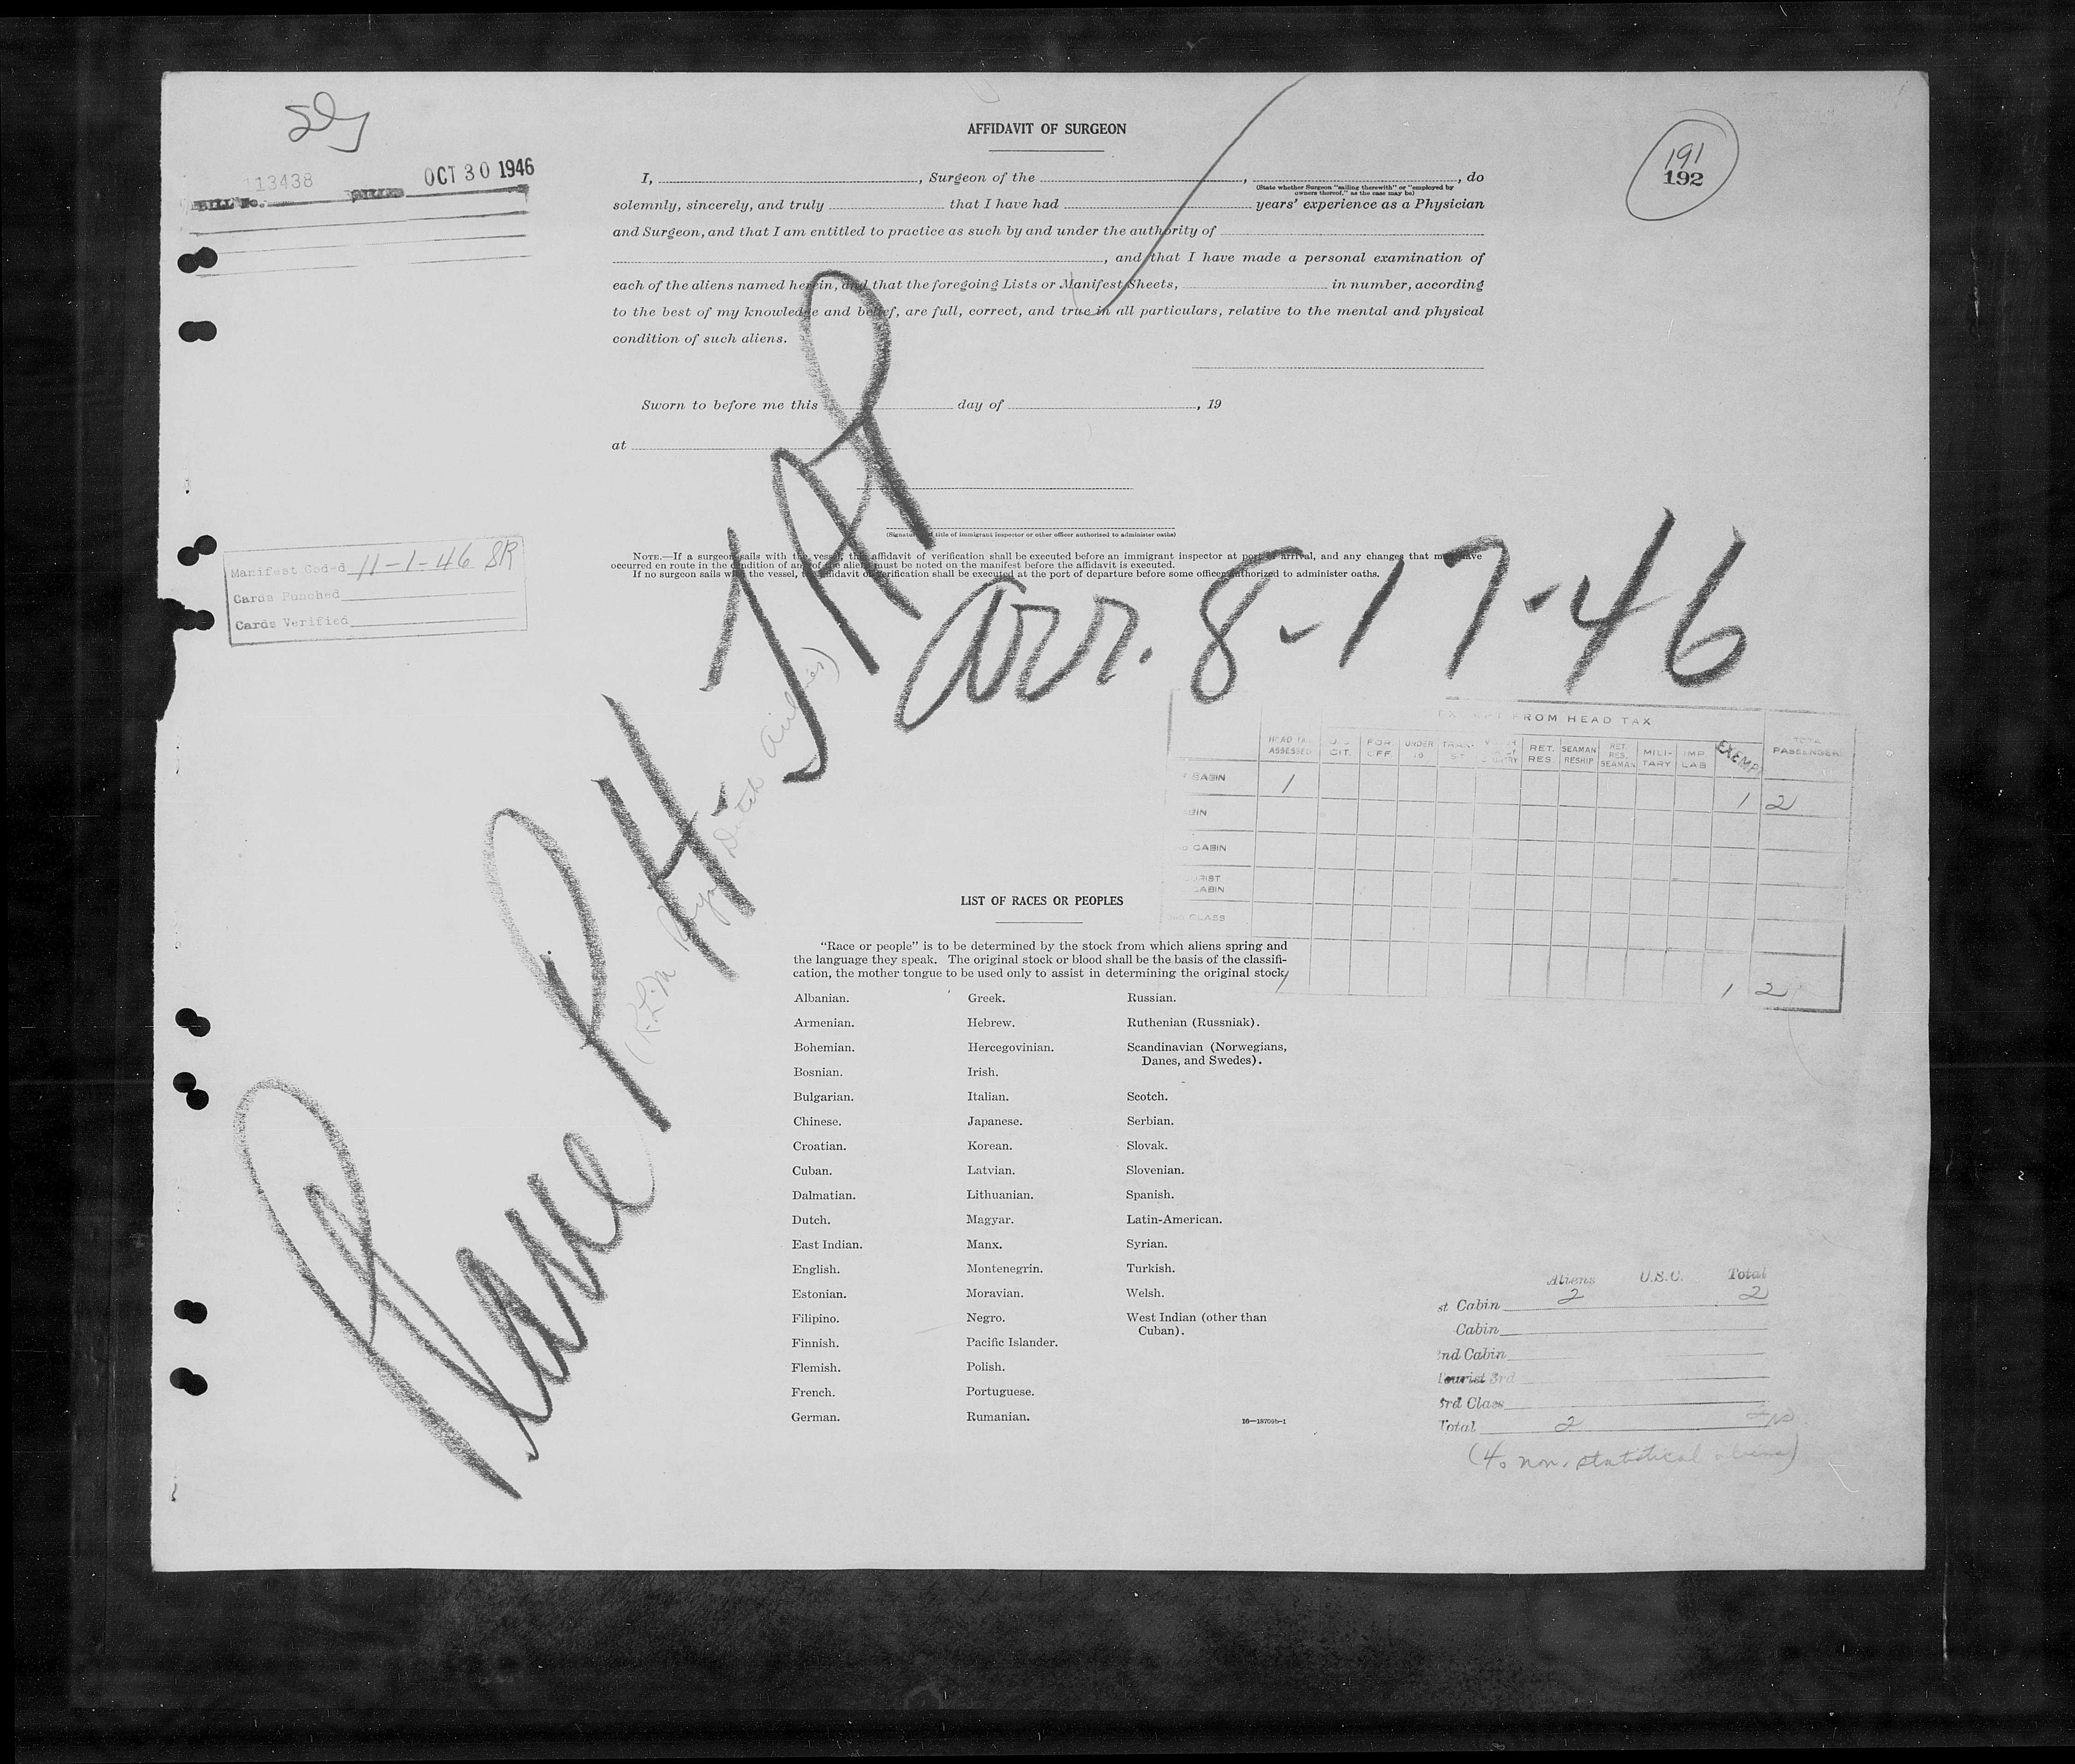 113438 OCT 30 1946
BILL No. BILLED
191
192
AFFIDAVIT OF SURGEON
I, , Surgeon of the , , do
(State whether Surgeon "sailing therewith" or "employed by
owners thereof," as the case may be)
solemnly, sincerely, and truly that I have had years' experience as a Physician
and Surgeon, and that I am entitled to practice as such by and under the authority of
, and that I have made a personal examination of
each of the aliens named herein, and that the foregoing Lists or Manifest Sheets, in number, according
to the best of my knowledge and belief, are full, correct, and true in all particulars, relative to the mental and physical
condition of such aliens.
Sworn to before me this day of , 19
at
(Signature and title of immigrant inspector or other officer authorized to administer oaths)
NOTE.—If a surgeon sails with the vessel, this affidavit of verification shall be executed before an immigrant inspector at port of arrival, and any changes that may have
occurred en route in the condition of any of the aliens must be noted on the manifest before the affidavit is executed.
If no surgeon sails with the vessel, the affidavit of verification shall be executed at the port of departure before some officer authorized to administer oaths.
Manifest Coded 11-1-46 SR
Cards Punched
Cards Verified
Plane PH-TAP
arr. 8-17-46
Royal Dutch Airlines)
EXEMPT FROM HEAD TAX
HEAD TAX ASSESSED U.S. CIT. FOR OFF. UNDER 16 RET. RES. SEAMAN RESHIP RET. RES. SEAMAN MILI-TARY IMP LAB EXEMPT TOTAL PASSENGERS
CABIN 1 1 2
CABIN
CABIN
TOURIST CABIN
CLASS
1 2
LIST OF RACES OR PEOPLES
"Race or people" is to be determined by the stock from which aliens spring and
the language they speak. The original stock or blood shall be the basis of the classifi-
cation, the mother tongue to be used only to assist in determining the original stock
Albanian. Greek. Russian.
Armenian. Hebrew. Ruthenian (Russniak).
Bohemian. Hercegovinian. Scandinavian (Norwegians,
Danes, and Swedes).
Bosnian. Irish.
Bulgarian. Italian. Scotch.
Chinese. Japanese. Serbian.
Croatian. Korean. Slovak.
Cuban. Latvian. Slovenian.
Dalmatian. Lithuanian. Spanish.
Dutch. Magyar. Latin-American.
East Indian. Manx. Syrian.
English. Montenegrin. Turkish.
Estonian. Moravian. Welsh.
Filipino. Negro. West Indian (other than
Cuban).
Finnish. Pacific Islander.
Flemish. Polish.
French. Portuguese.
German. Rumanian.
16—18709b-1
Aliens U.S.C. Total
st Cabin 2 2
Cabin
nd Cabin
Tourist 3rd
3rd Class
Total 2
(4. non. statistical aliens)